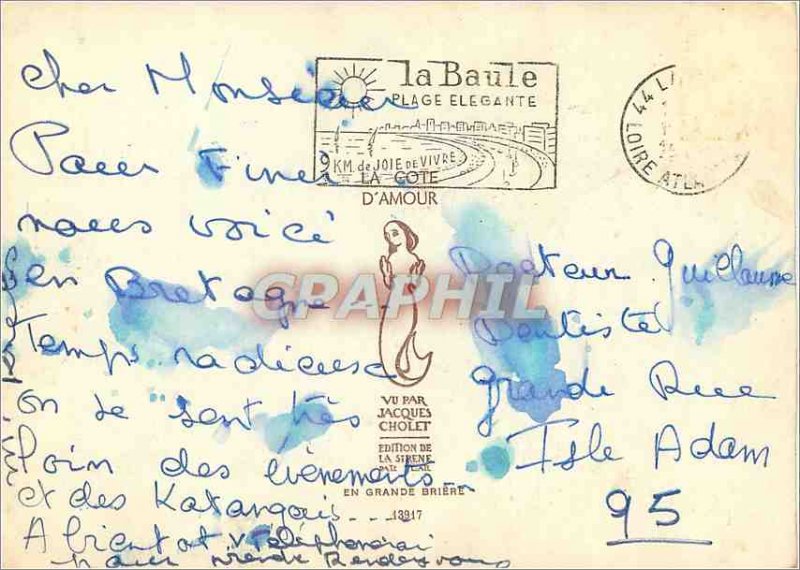 Cher Monsieur
Pour Finir
nous voici
en Bretagne
Temps radieux
on se sent très
loin des évènements
et des Katangais
A bientot Téléphonerai
pour prendre Rendez vous
la Baule
PLAGE ELEGANTE
9 KM. de JOIE DE VIVRE
LA COTE
D'AMOUR
44 L
LOIRE ATL
CPAPHIL
VU PAR
JACQUES
CHOLET
EDITION DE
LA SIRENE
EN GRANDE BRIÈRE
13917
Docteur Guillaume
Dentiste
Grande Rue
Isle Adam
95